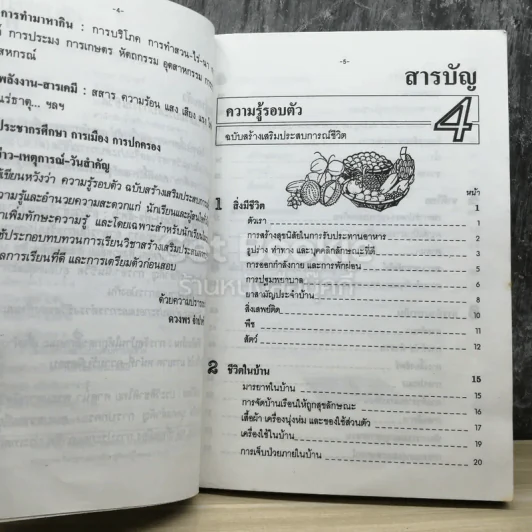 -4-
การทำมาหากิน : การบริโภค การทำสวน-ไร่-นา
การประมง การเกษตร หัตถกรรม อุตสาหกรรม
สหกรณ์
พลังงาน-สารเคมี : สสาร ความร้อน แสง เสียง แรง
แร่ธาตุ... ฯลฯ
ประชากรศึกษา การเมือง การปกครอง
ข่าว-เหตุการณ์-วันสำคัญ
ผู้เขียนหวังว่า ความรู้รอบตัว ฉบับสร้างเสริมประสบการณ์ชีวิต
ความรู้และอำนวยความสะดวกแก่ นักเรียนและผู้สนใจ
เพิ่มทักษะความรู้ และโดยเฉพาะสำหรับนักเรียน
ใช้ประกอบทบทวนการเรียนวิชาสร้างเสริมประสบการณ์
ผลการเรียนที่ดี และการเตรียมตัวก่อนสอบ
ด้วยความปรารถนา
ดวงพร
-5-
สารบัญ
ความรู้รอบตัว 4
ฉบับสร้างเสริมประสบการณ์ชีวิต
หน้า
1 สิ่งมีชีวิต 1
ตัวเรา 1
การสร้างสุขนิสัยในการรับประทานอาหาร 3
รูปร่าง ท่าทาง และบุคคลิกลักษณะที่ดี 5
การออกกำลังกาย และการพักผ่อน 6
การปฐมพยาบาล 7
ยาสามัญประจำบ้าน 8
สิ่งเสพย์ติด 10
พืช 11
สัตว์ 12
2 ชีวิตในบ้าน 15
มารยาทในบ้าน 15
การจัดบ้านเรือนให้ถูกสุขลักษณะ 16
เสื้อผ้า เครื่องนุ่งห่ม และของใช้ส่วนตัว 17
เครื่องใช้ในบ้าน 19
การเจ็บป่วยภายในบ้าน 20